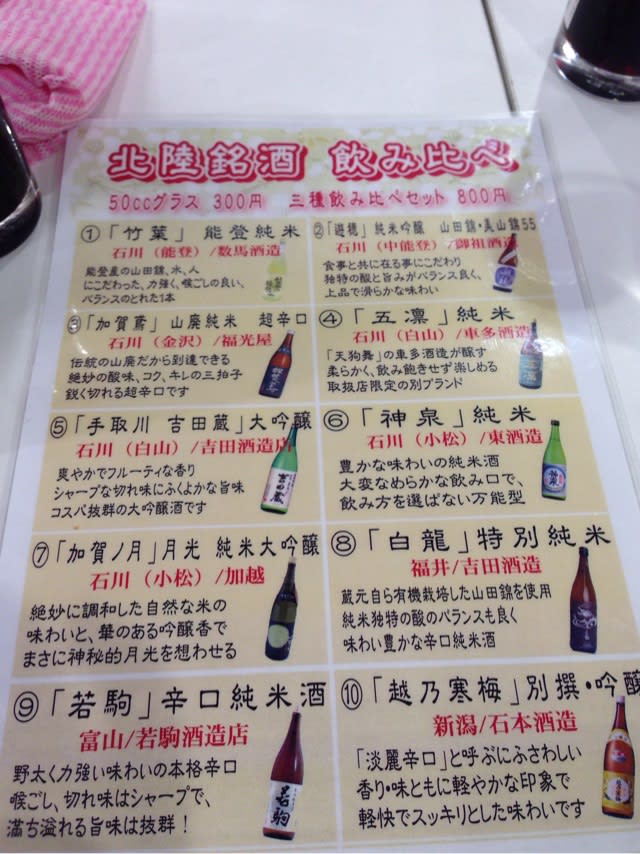 北陸銘酒 飲み比べ
50ccグラス 300円 三種飲み比べセット 800円
①「竹葉」能登純米
石川（能登）/数馬酒造
能登産の山田錦、水、人
にこだわった、力強く、喉ごしの良い、
バランスのとれた1本
②「遊穂」純米吟醸 山田錦・美山錦55
石川（中能登）/御祖酒造
食事と共に在る事にこだわり
独特の酸と旨みがバランス良く、
上品で滑らかな味わい
③「加賀鳶」山廃純米 超辛口
石川（金沢）/福光屋
伝統の山廃だから到達できる
絶妙の酸味、コク、キレの三拍子
鋭く切れる超辛口です
④「五凛」純米
石川（白山）/車多酒造
「天狗舞」の車多酒造が醸す
柔らかく、飲み飽きせず楽しめる
取扱店限定の別ブランド
⑤「手取川 吉田蔵」大吟醸
石川（白山）/吉田酒造店
爽やかでフルーティな香り
シャープな切れ味にふくよかな旨味
コスパ抜群の大吟醸酒です
⑥「神泉」純米
石川（小松）/東酒造
豊かな味わいの純米酒
大変なめらかな飲み口で、
飲み方を選ばない万能型
⑦「加賀ノ月」月光 純米大吟醸
石川（小松）/加越
絶妙に調和した自然な米の
味わいと、華のある吟醸香で
まさに神秘的月光を想わせる
⑧「白龍」特別純米
福井/吉田酒造
蔵元自ら有機栽培した山田錦を使用
純米独特の酸のバランスも良く
味わい豊かな辛口純米酒
⑨「若駒」辛口純米酒
富山/若駒酒造店
野太く力強い味わいの本格辛口
喉ごし、切れ味はシャープで、
満ち溢れる旨味は抜群！
⑩「越乃寒梅」別撰・吟醸
新潟/石本酒造
「淡麗辛口」と呼ぶにふさわしい
香り・味ともに軽やかな印象で
軽快でスッキリとした味わいです